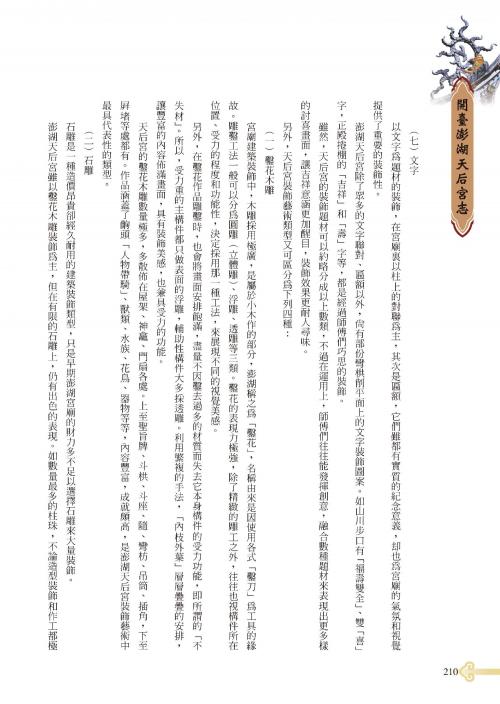 開臺澎湖天后宮志
(七)文字
以文字為題材的裝飾，在宮廟裏以柱上的對聯為主，其次是匾額，它們雖都有實質的紀念意義，却也為宮廟的氣氛和視覺
提供了重要的裝飾性。
澎湖天后宮除了眾多的文字聯對、匾額以外，尚有部份彎栱削平面上的文字裝飾圖案。如山川步口有「福壽雙全」、雙「喜」
字，正殿捲棚的「吉祥」和「壽」字等，都是經過師傅們巧思的裝飾。
雖然，天后宮的裝飾題材可以約略分成以上數類，不過在運用上，師傅們往往能發揮創意，融合數種題材來表現出更多樣
的討喜畫面，讓吉祥意涵更加醒目，裝飾效果更耐人尋味。
另外，天后宮裝飾藝術類型又可區分為下列四種：
(一)鑿花木雕
宮廟建築裝飾中，木雕採用極廣，是屬於小木作的部分，澎湖稱之為「鑿花」，名稱由來是因使用各式「鑿刀」為工具的緣
故。雕鑿工法一般可以分為圓雕（立體雕）、浮雕、透雕等三類。鑿花的表現力極強，除了精緻的雕工之外，往往也視構件所在
位置、受力的程度和功能性，決定採用那一種工法，來展現不同的視覺美感。
另外，在鑿花作品雕鑿時，也會將畫面安排飽滿，盡量不因鑿去過多的材質而失去它本身構件的受力功能，即所謂的「不
失材」。所以，受力重的主構件都只做表面的浮雕，輔助性構件大多採透雕。利用繁複的手法，「內枝外葉」層層疊疊的安排，
讓豐富的內容佈滿畫面，具有裝飾美感，也兼具受力的功能。
天后宮的鑿花木雕數量極多，多散佈在屋架、神龕、門扇各處。上至聖旨牌、斗栱、斗座、隨、彎枋、吊筒、插角，下至
屏堵等處都有。作品涵蓋了齣頭「人物帶騎」、獸類、水族、花鳥、器物等等，內容豐富，成就頗高，是澎湖天后宮裝飾藝術中
最具代表性的類型。
(二)石雕
石雕是一種造價昂貴卻經久耐用的建築裝飾類型，只是早期澎湖宮廟的財力多不足以選擇石雕來大量裝飾。
澎湖天后宮雖以鑿花木雕裝飾為主，但在有限的石雕上，仍有出色的表現。如數量最多的柱珠，不論造型裝飾和作工都極
210